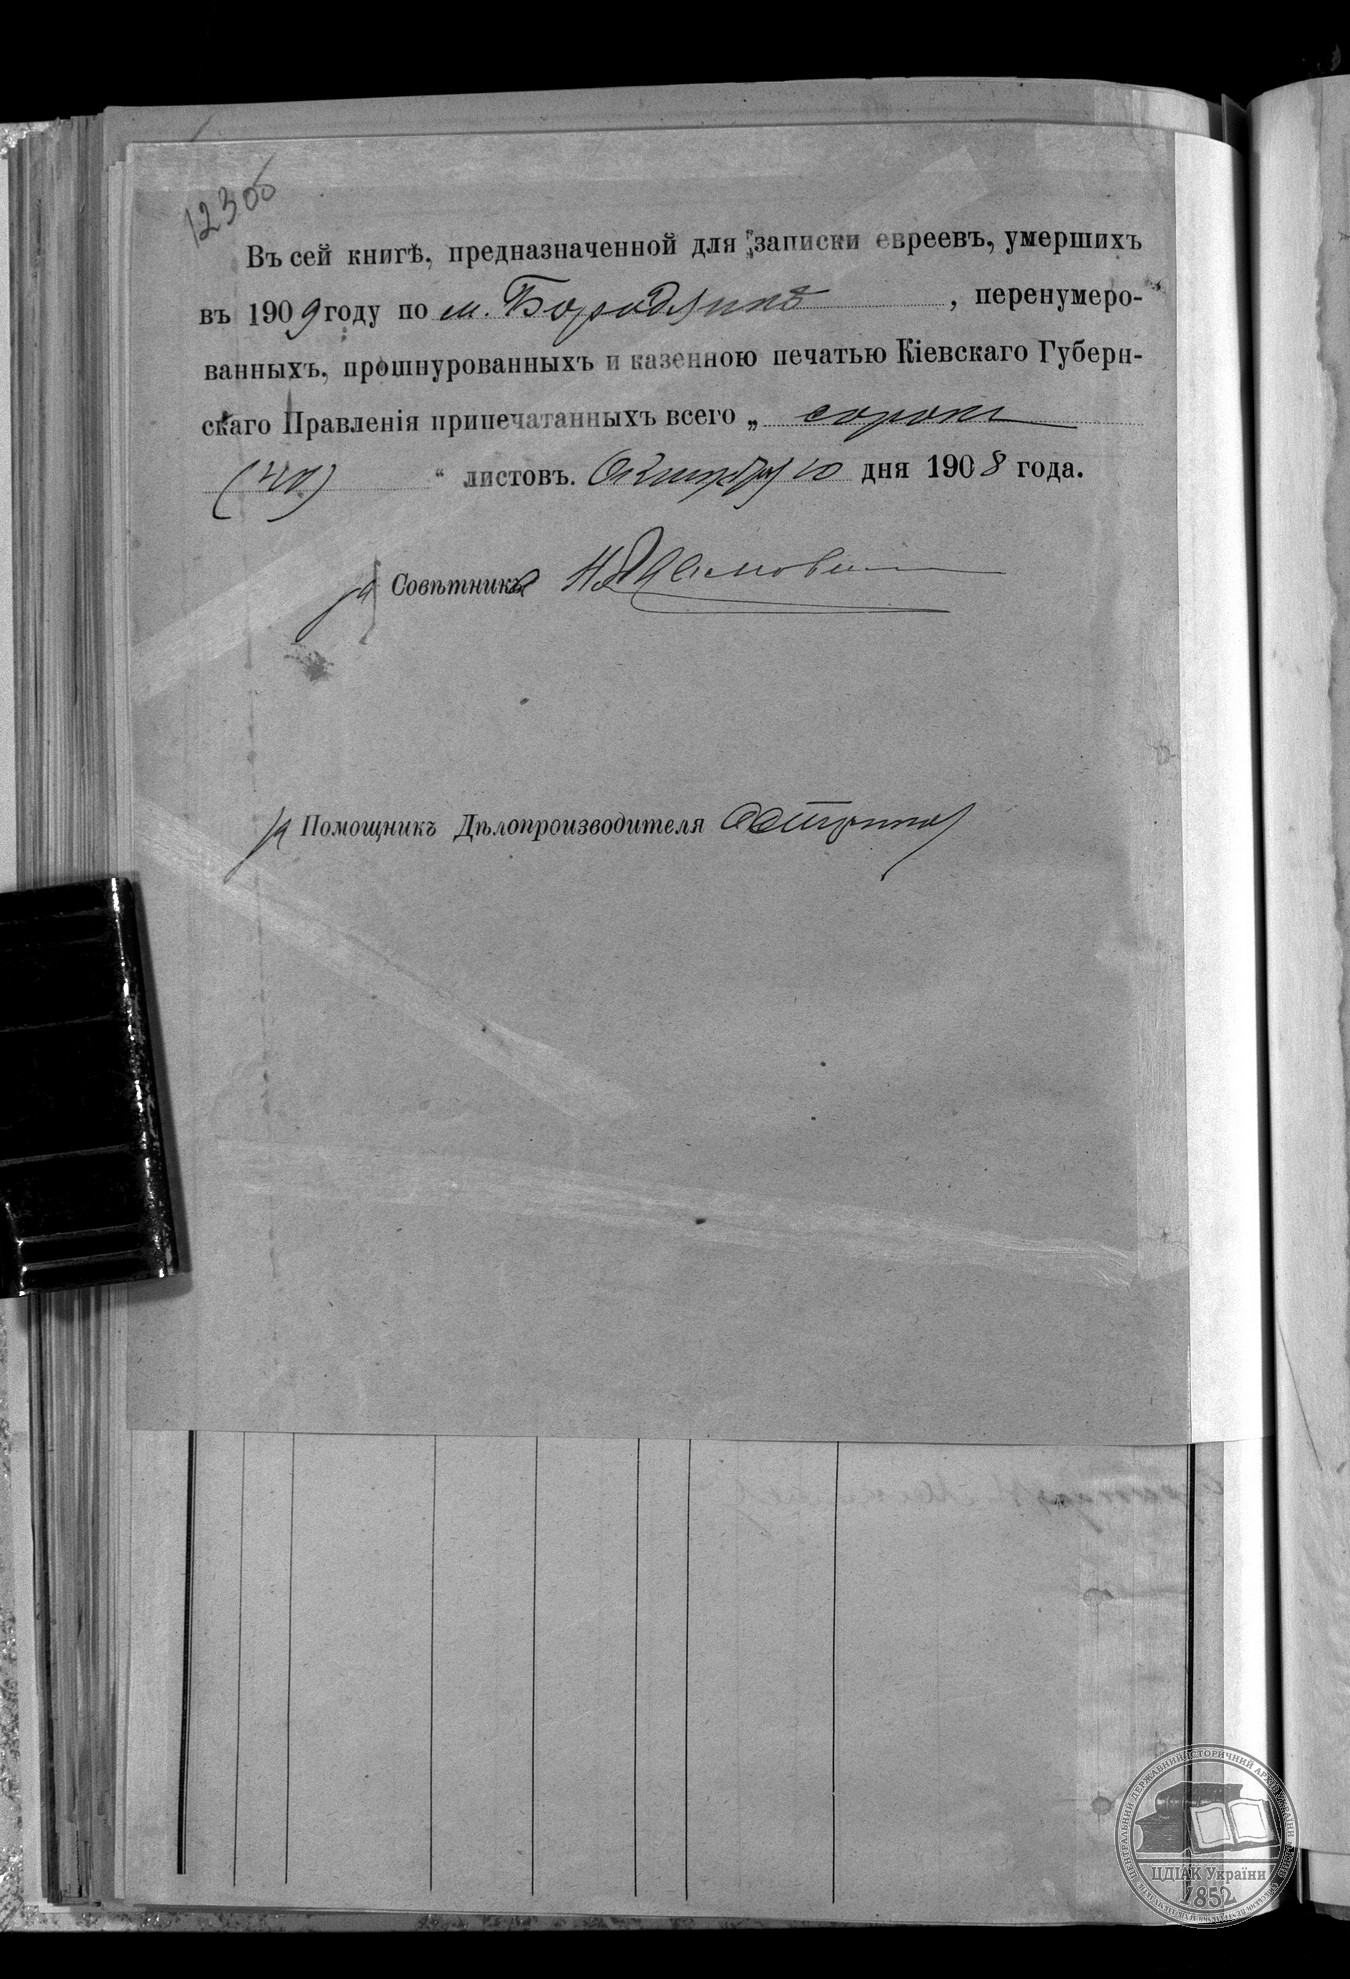 1230б
Въ сей книгѣ, предназначенной для записки евреевъ, умершихъ
въ 1909 году по м. Бородянкѣ, перенумеро-
ванныхъ, прошнурованныхъ и казенною печатью Кіевскаго Губерн-
скаго Правленія припечатанныхъ всего „ сорокъ
(40) “ листовъ. Октября 10 дня 1908 года.
за Совѣтника
за Помощникъ Дѣлопроизводителя
ЦДІАК України
1852